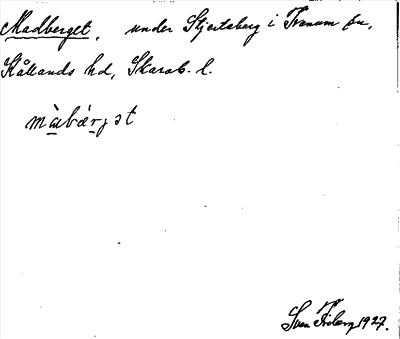 Madberget, under Stjertaberg i Tranum sn,
Kållands hd, Skarab. l.
màbærjət
Sven Friberg 1927.